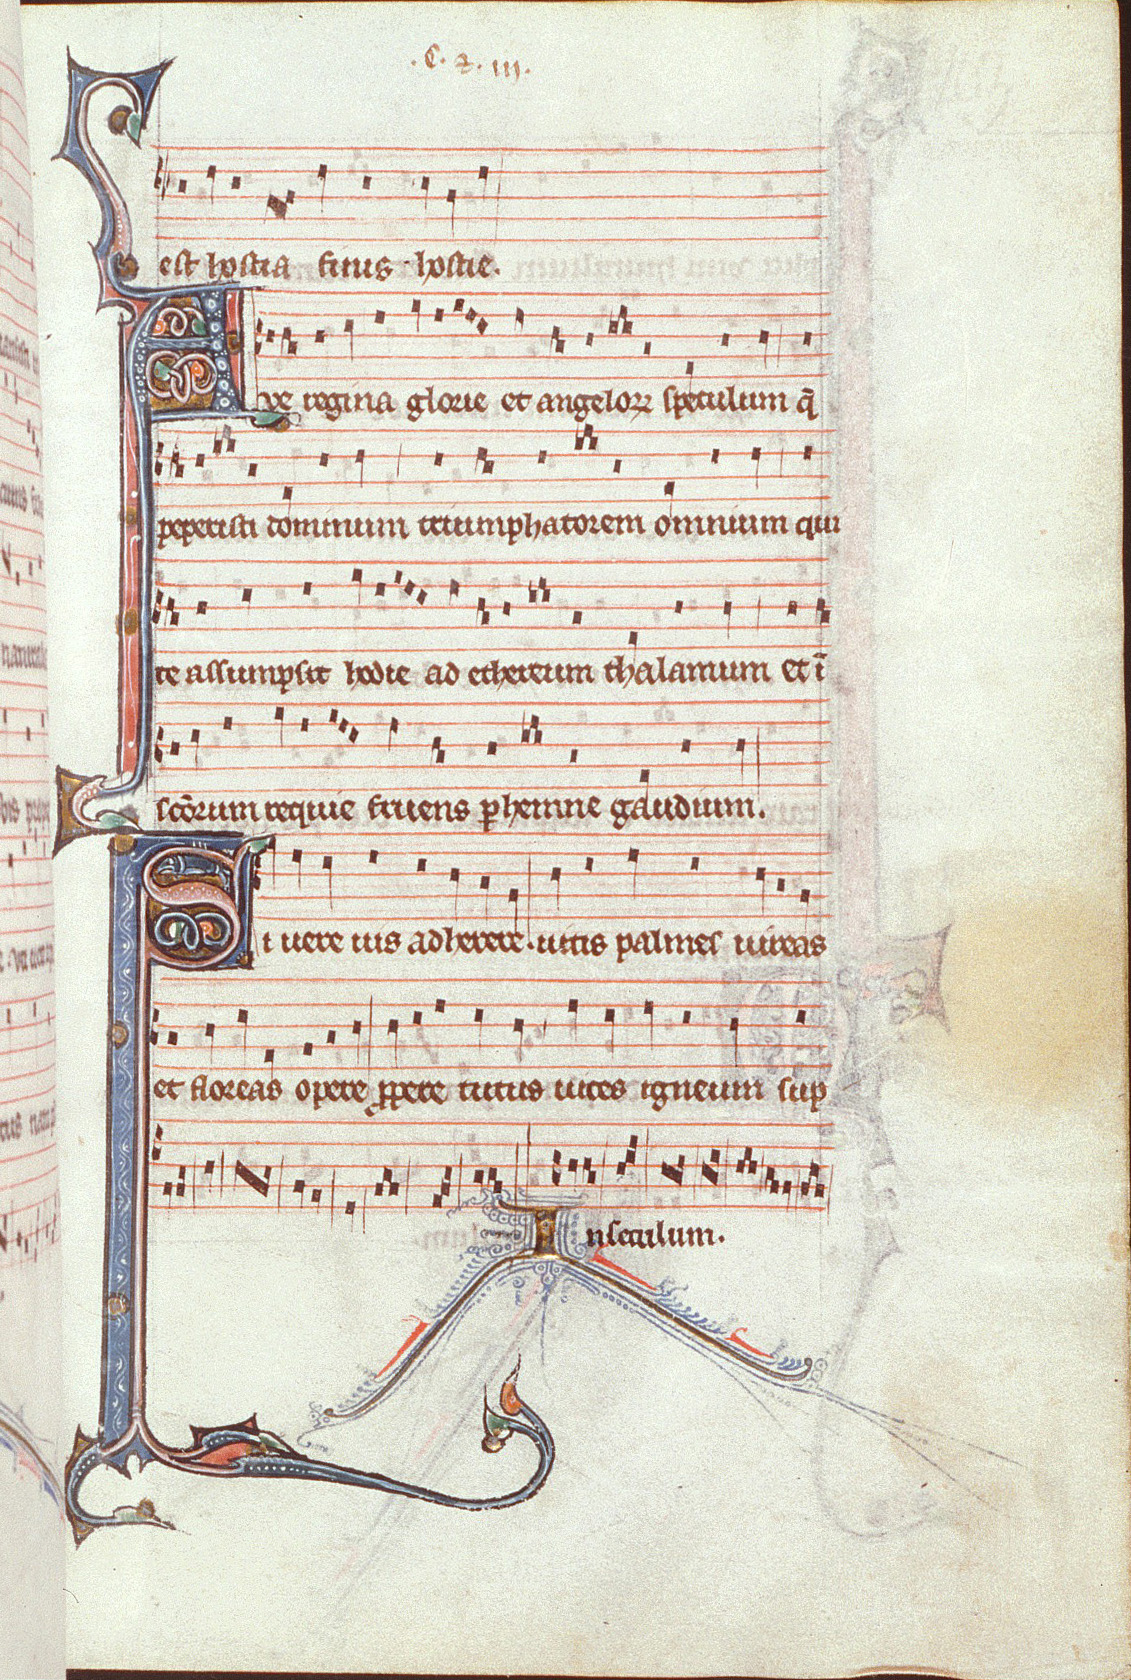 .C. z. III.
est hostia finis hostie.
Ave regina glorie et angeloꝝ speculum q̄
peperisti dominum triumphatorem omnium qui
te assumpsit hodie ad ethereum thalamum et ī
sc̄orum requie fruens ꝑhemne gaudium.
Si vere vis adherere. vitis palmes vireas
et floreas opere ꝓpere tutus vites igneum sup
Inseculum.